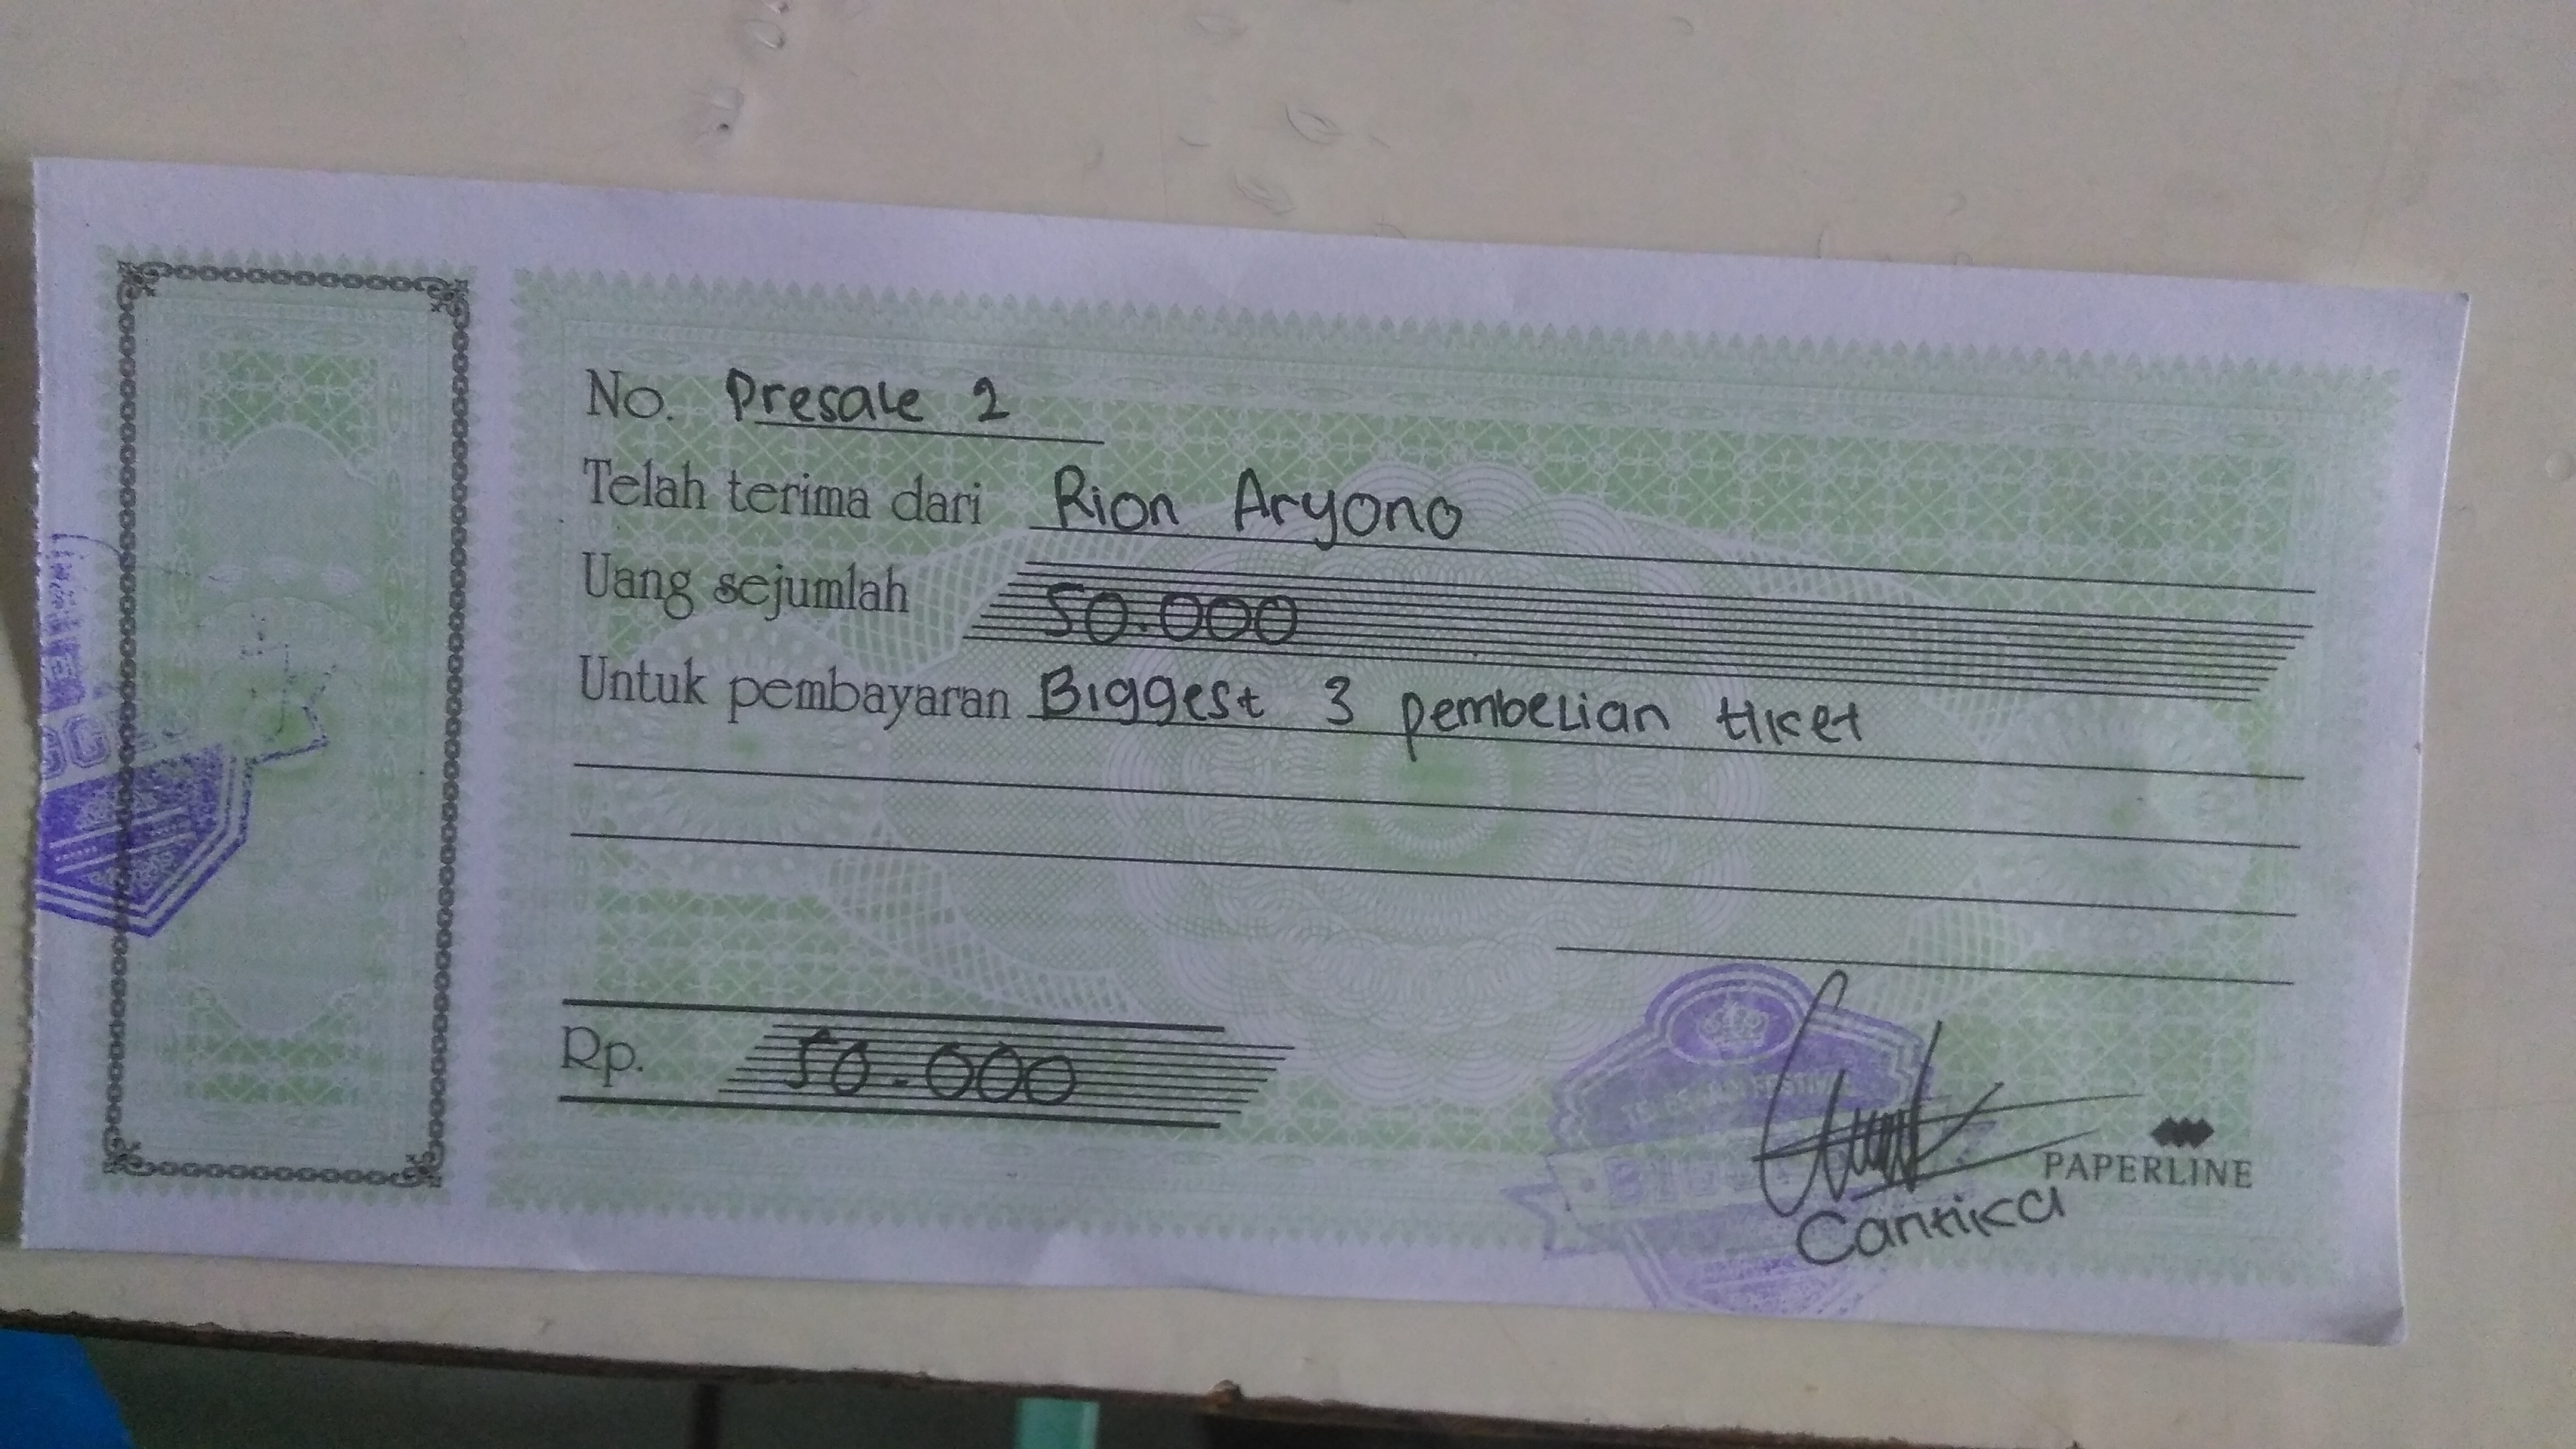 No. Presale 2
Telah terima dari Rion Aryono
Uang sejumlah 50.000
Untuk pembayaran Biggest 3 pembelian tiket
Rp. 50.000
PAPERLINE
Cantika